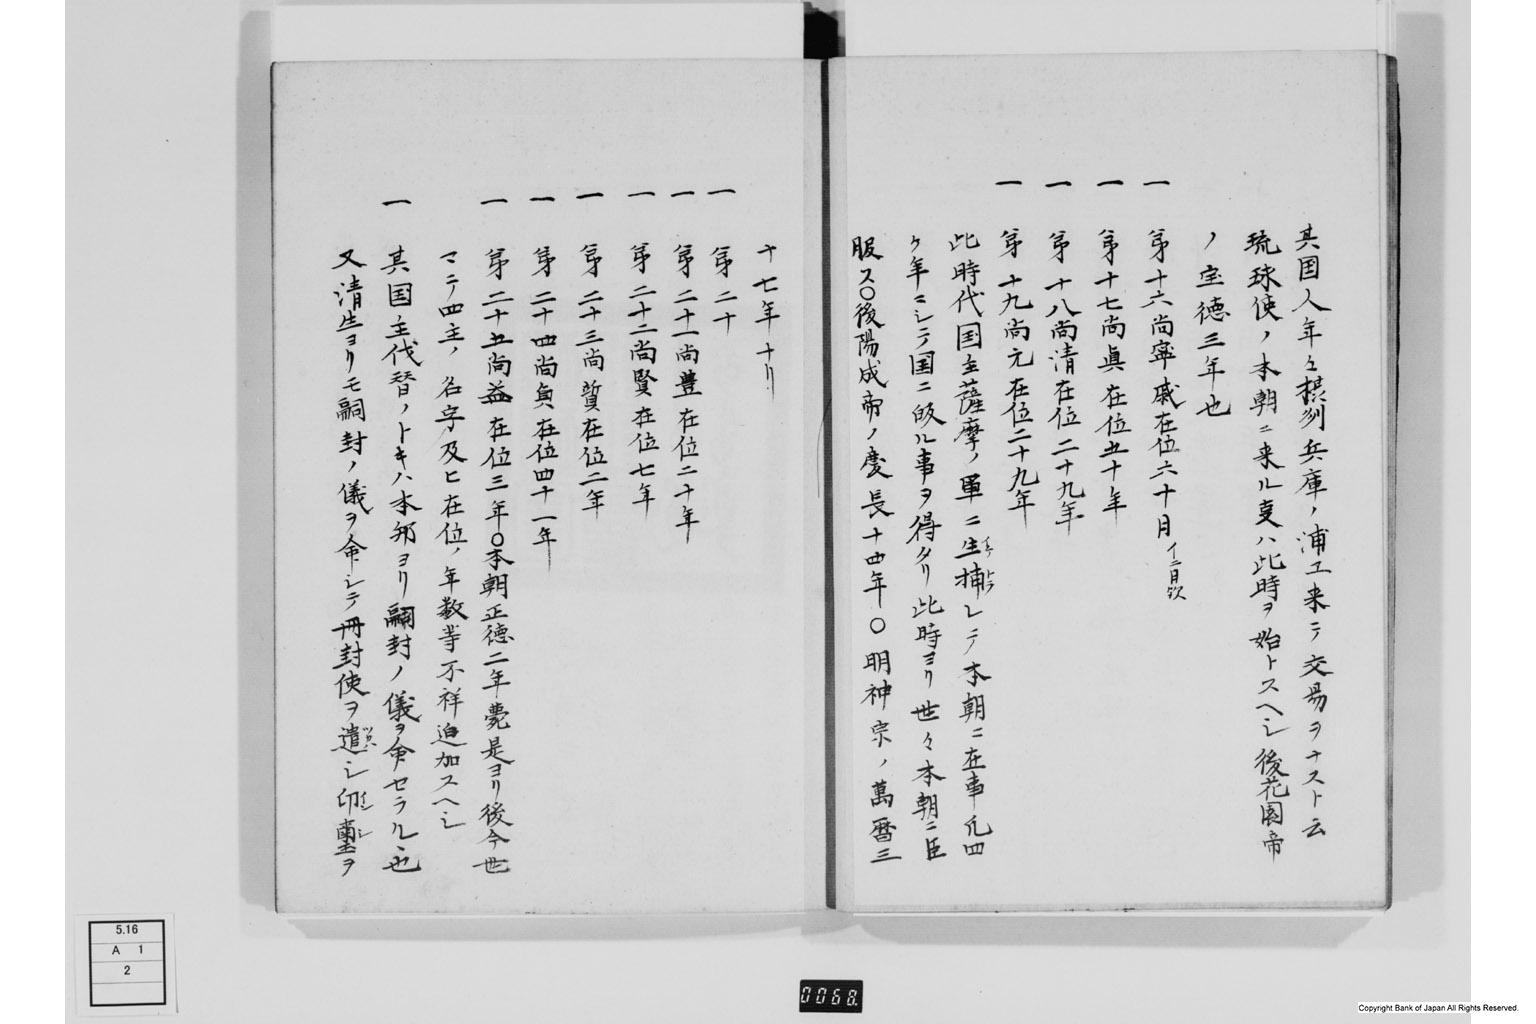 其国人年々摂刕兵庫ノ浦エ来テ交易ヲナスト云
琉球使ノ本朝ニ来ル叓ハ此時ヲ始トスヘシ後花園帝
ノ宝徳三年也
一 第十六尚寧威在位六十月イニ日欤
一 第十七尚眞在位五十年
一 第十八尚清在位二十九年
一 第十九尚元在位二十九年
此時代国主薩摩ノ軍ニ生捕レテ本朝ニ在事凡四
ケ年ニシテ国ニ皈ル事ヲ得タリ此時ヨリ世々本朝ニ臣
服ス〇後陽成帝ノ慶長十四年〇明神宗ノ萬暦三
十七年ナリ
一 第二十
一 第二十一尚豊在位二十年
一 第二十二尚賢在位七年
一 第二十三尚質在位二年
一 第二十四尚貞在位四十一年
一 第二十五尚益在位三年〇本朝正徳二年薨是ヨリ後今世
マテ四主ノ名字及ヒ在位ノ年数等不祥追加スヘシ
一 其国主代替ノトキハ本邦ヨリ嗣封ノ儀ヲ命セラルヽ也
又清生ヨリモ嗣封ノ儀ヲ命シテ冊封使ヲ遣シ印璽ヲ
5.16
A 1
2
0068.
Copyright Bank of Japan All Rights Reserved.